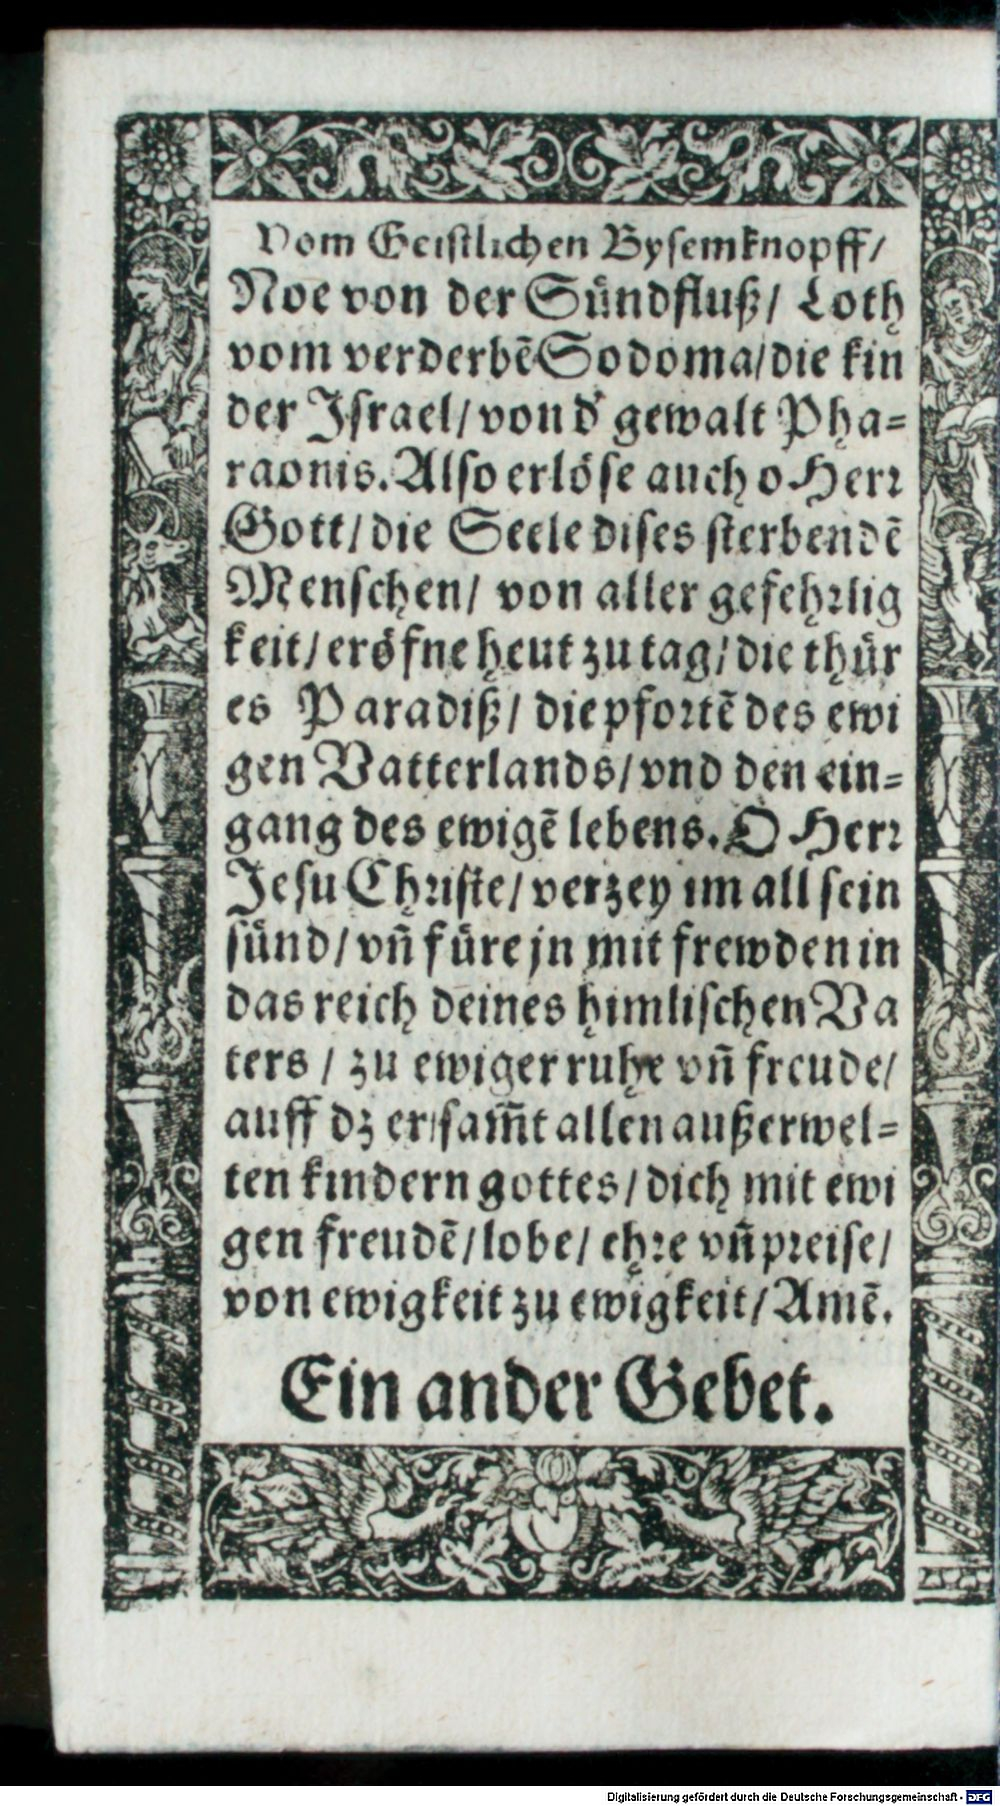 Vom Geistlichen Bysemknopff/
Noe von der Sündfluß/ Loth
vom verderbē Sodoma/die kin
der Israel/von d' gewalt Pha=
raonis. Also erlöse auch o Herr
Gott/die Seele dises sterbendē
Menschen/ von aller gefehrlig
keit/eröfne heut zu tag/die thür
es Paradiß/ die pfortē des ewi
gen Vatterlands/vnd den ein=
gang des ewigē lebens. O Herr
Jesu Christe/verzey im all sein
sünd/vñ füre jn mit frewden in
das reich deines himlischen Va
ters / zu ewiger ruhe vñ freude/
auff dz er/sam̄t allen außerwel=
ten kindern gottes/dich mit ewi
gen freudē/lobe/ ehre vñ preise/
von ewigkeit zu ewigkeit/Amē.
Ein ander Gebet.
Digitalisierung gefördert durch die Deutsche Forschungsgemeinschaft - DFG